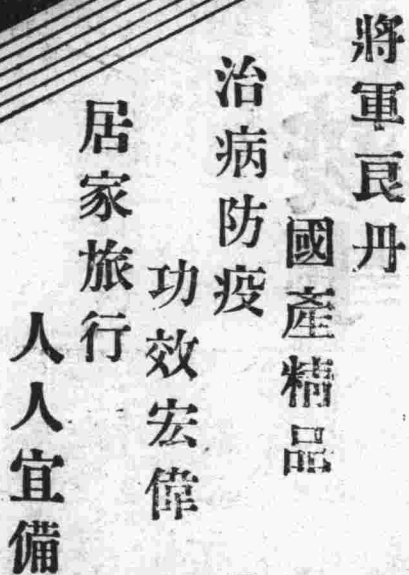 將軍良丹
國產精品
治病防疫
功效宏偉
居家旅行
人人宜備